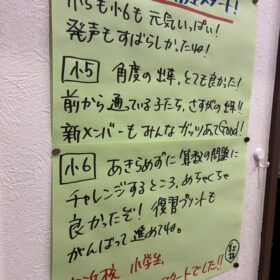 スタート!
小5も小6も 元気いっぱい!
発声もすばらしかったね!
小5 角度の出来、とても良かった!
前から通っている子たち、さすがの出来!!
新メンバーも みんな ガッツあってGood!
小6 あきらめずに 算数の問題に
チャレンジするところ、めちゃくちゃ
良かったぞ! 復習プリントも
がんばって 進めてね。
校 小学生、
スタートでした!!